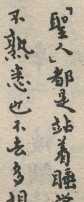 「聖人」都是站着睡覺
不熟悉也不去多想